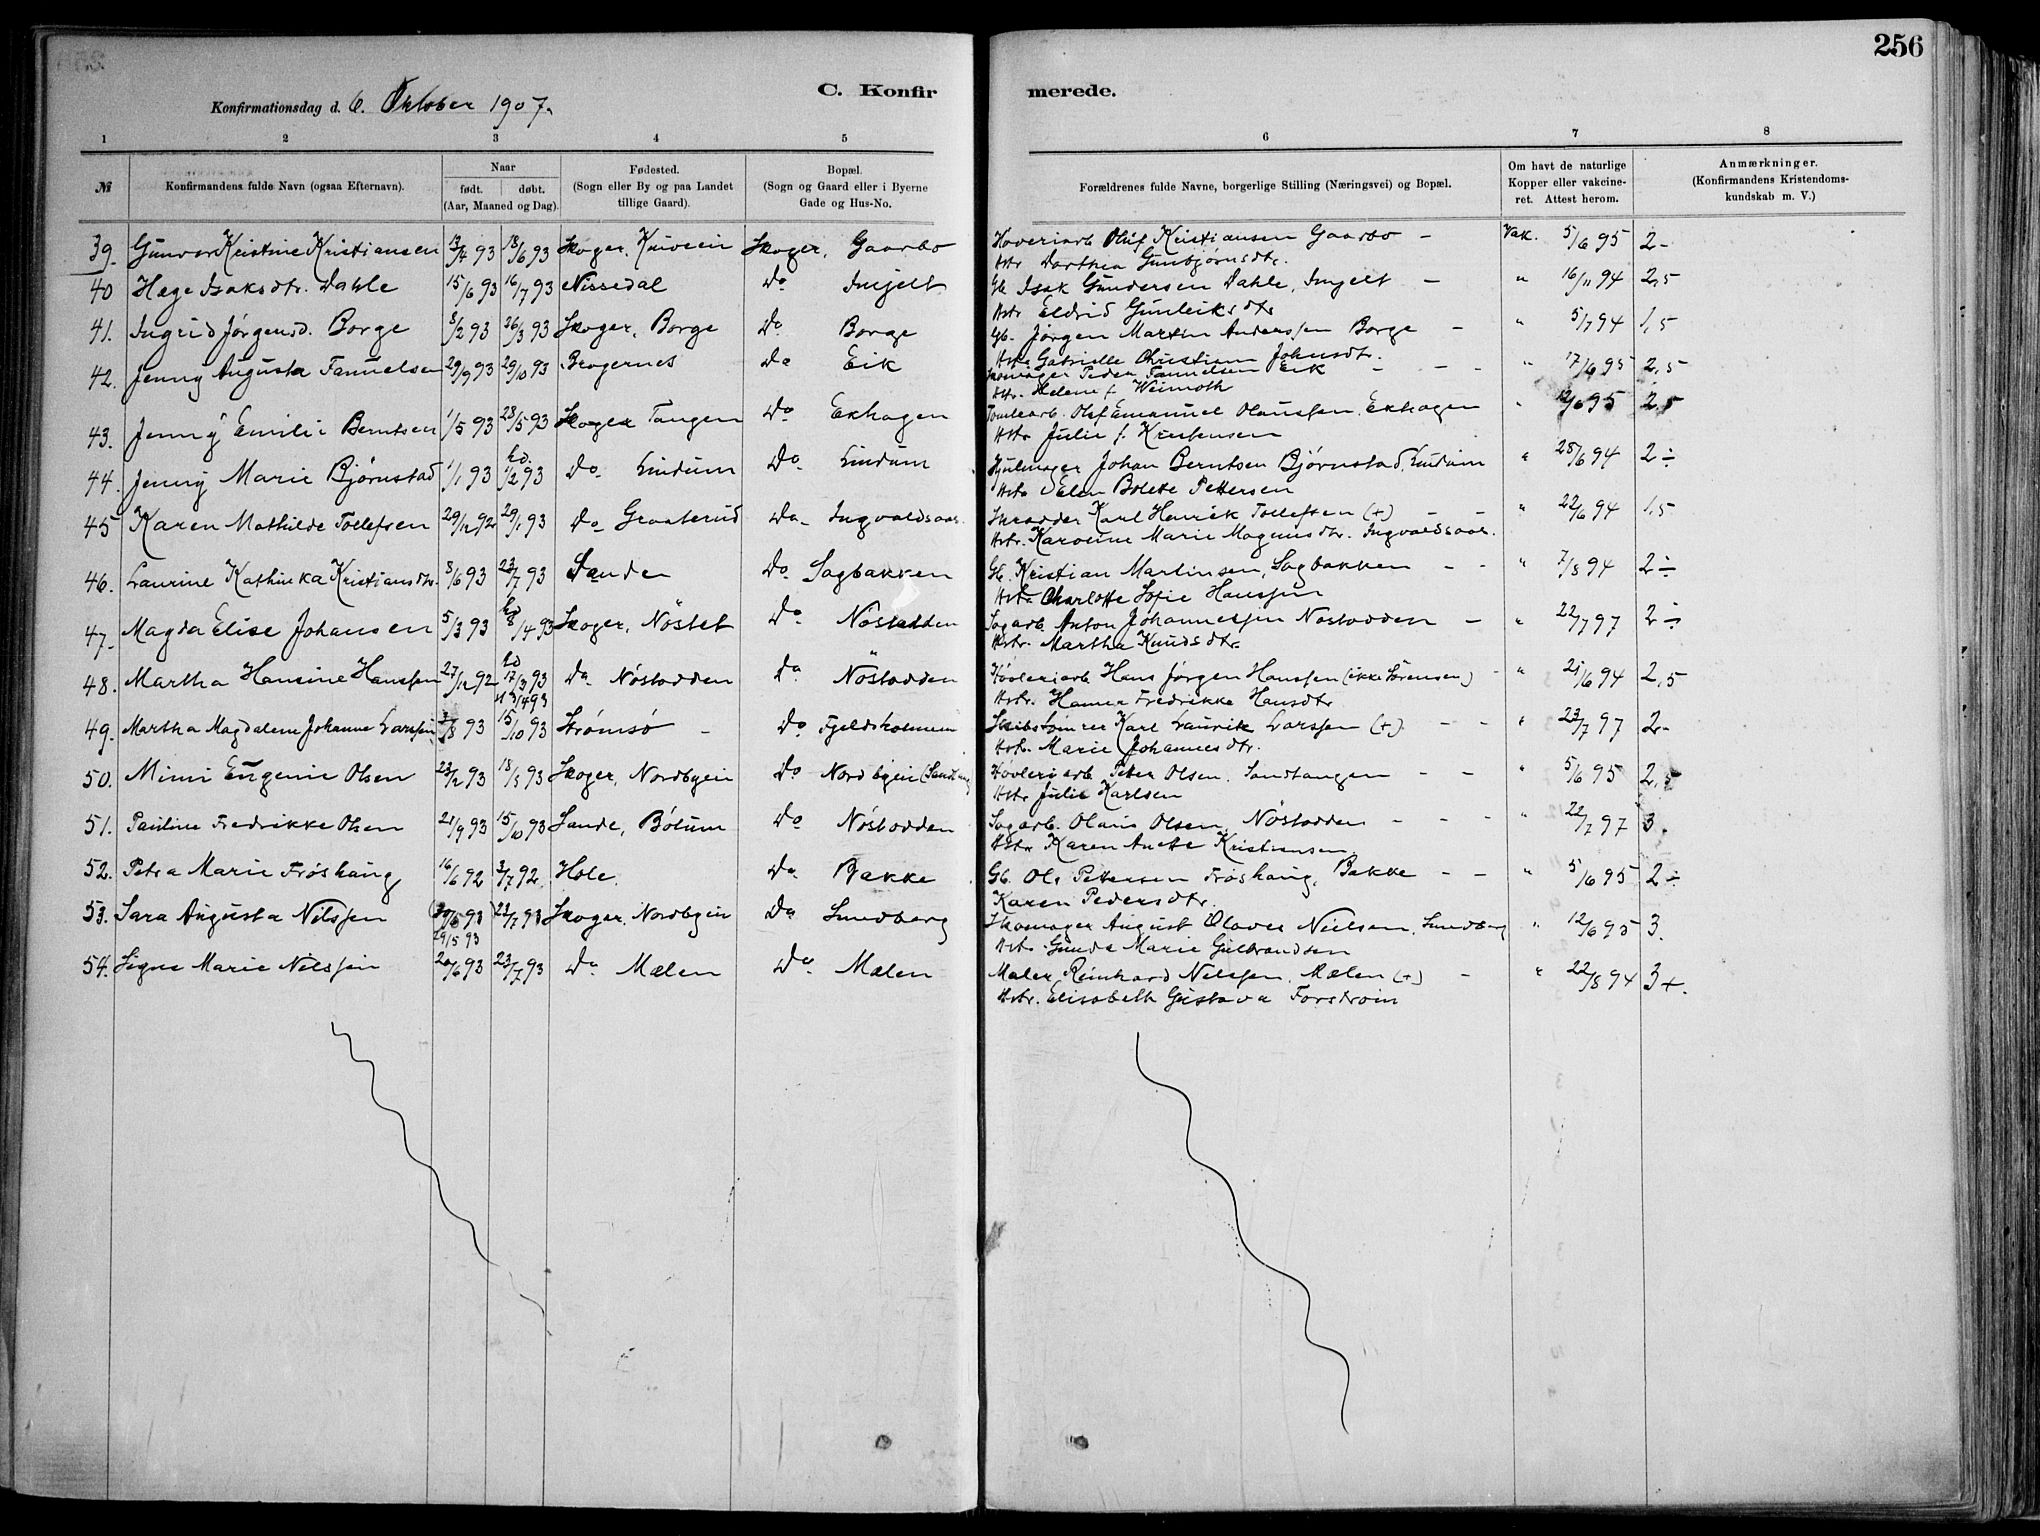 256
C. Konfirmerede.
Konfirmationsdag d. 6. Oktober 1907.
1 2 3 4 5 6 7 8
№ Konfirmandens fulde Navn (ogsaa Efternavn). Naar født. døbt. (Aar, Maaned og Dag). Fødested. (Sogn eller By og paa Landet tillige Gaard). Bopæl. (Sogn og Gaard eller i Byerne Gade og Hus-No. Forældrenes fulde Navne, borgerlige Stilling (Næringsvei) og Bopæl. Om havt de naturlige Kopper eller vakcineret. Attest herom. Anmærkninger. (Konfirmandens Kristendomskundskab m. V.)
39. Gunvor Kristine Kristiansen 13/4 93 18/6 93 Skoger, Skoger, Gaarbo Høvleriarb. Oluf Kristiansen Gaarbo – Vak. 5/6 95 2-
Hstr Dorthea Gunbjørnsdtr.
40 Hæge Isaksdtr. Dahle 15/6 93 16/7 93 Nissedal Do Gb. Isak Gundersen Dahle, – " 16/11 94 2,5
Hstr Eldrid Gunleiksdtr
41. Ingrid Jørgensd. Borge 8/2 93 26/3 93 Skoger, Borge Do Borge Gb. Jørgen Martin Anderssen Borge – " 5/7 94 1,5
Hstr Gabrielle Christiane Johnsdtr.
42. Jenny Augusta Fannelsen 29/9 93 29/10 93 Bragernes Do Eik Skomager Peder Fannelsen Eik – – – " 17/6 95 2,5
Hstr. Helene f. Weimoth
43. Jenny Emilie Berntsen 1/5 93 28/5 93 Skoger Tangen Do Ekhagen Tomtearb. Olaf Emanuel Olaussen, Ekhagen " 12/6 95 2,5
Hstr Julie f. Kristensen
44. Jenny Marie Bjørnstad 1/1 93 hd. 1/2 93 Do Lindum Do Lindum Hjulmager Johan Berntsen Bjørnstad, Lindum " 28/6 94 2÷
Hstr Elen Bolette Pettersen
45 Karen Mathilde Tollefsen 29/12 92 29/1 93 Do Graaterud Do Ingvaldsaas. Skrædder Karl Henrik Tollefsen (+) – – " 22/6 94 1,5
Hstr. Karoline Marie Magnusdtr. Ingvaldsaas.
46. Laurine Kathinka Kristiansdtr. 8/6 93 23/7 93 Sande Do Sagbakken Gb. Kristian Martinsen, Sagbakken – – " 7/8 94 2÷
Hstr Charlotte Sofie Hanssen
47. Magda Elise Johansen 5/3 93 hd 8/4 93 Skoger, Nöstet Do Nöstodden Sagarb. Anton Johannessen Nöstodden – " 22/7 97 2÷
Hstr. Martha Knudsdtr.
48. Martha Hansine Hanssen 27/12 92 hd 17/3 93 Do Nöstodden Do Nöstodden Høvleriarb. Hans Jørgen Hanssen (ikke Sörensen) – " 21/6 94 2,5
Hstr. Hanna Fredrikke Hansdtr
49. Martha Magdalene Johanne Larssen 15/10 93 Strømsö – Do Fjeldsholmen Skibstømrer Karl Laurik Larssen (+) – – " 23/7 97 2-
Hstr. Marie Johannesdtr.
50. Mimi Eugenie Olsen 23/2 93 Skoger, Nordbyein Do Nordbyein Høvleriarb Peter Olsen, Sandtangen – – " 5/6 95 2,5
Hstr Julie Karlsen
51. Pauline Fredrikke Olsen 21/9 93 15/10 93 Sande, Bölum Do Nöstodden Sagarb. Olaus Olsen, Nöstodden – – – " 22/7 97 3.
Hstr Karen Anette Kristiansen
52. Petra Marie Frøshaug 16/6 92 3/7 92 Hole. Do Bakke Gb. Ole Pettersen Frøshaug, Bakke – – " 5/6 95 2÷
Karen Pedersdtr.
53. Sara Augusta Nilssen 29/5 93 23/7 93 Skoger, Nordbyein Do Sundberg Skomager August Olaver Nielsen, Sundberg " 12/6 95 3.
Hstr. Gunda Marie Gulbrandsen
54. Signe Marie Nilssen 20/6 93 23/7 93 Do Mælen Do Mælen Maler Reinhard Nilssen, Mælen (+) – " 22/8 94 3+.
Hstr. Elisabeth Gustava Forstrøm